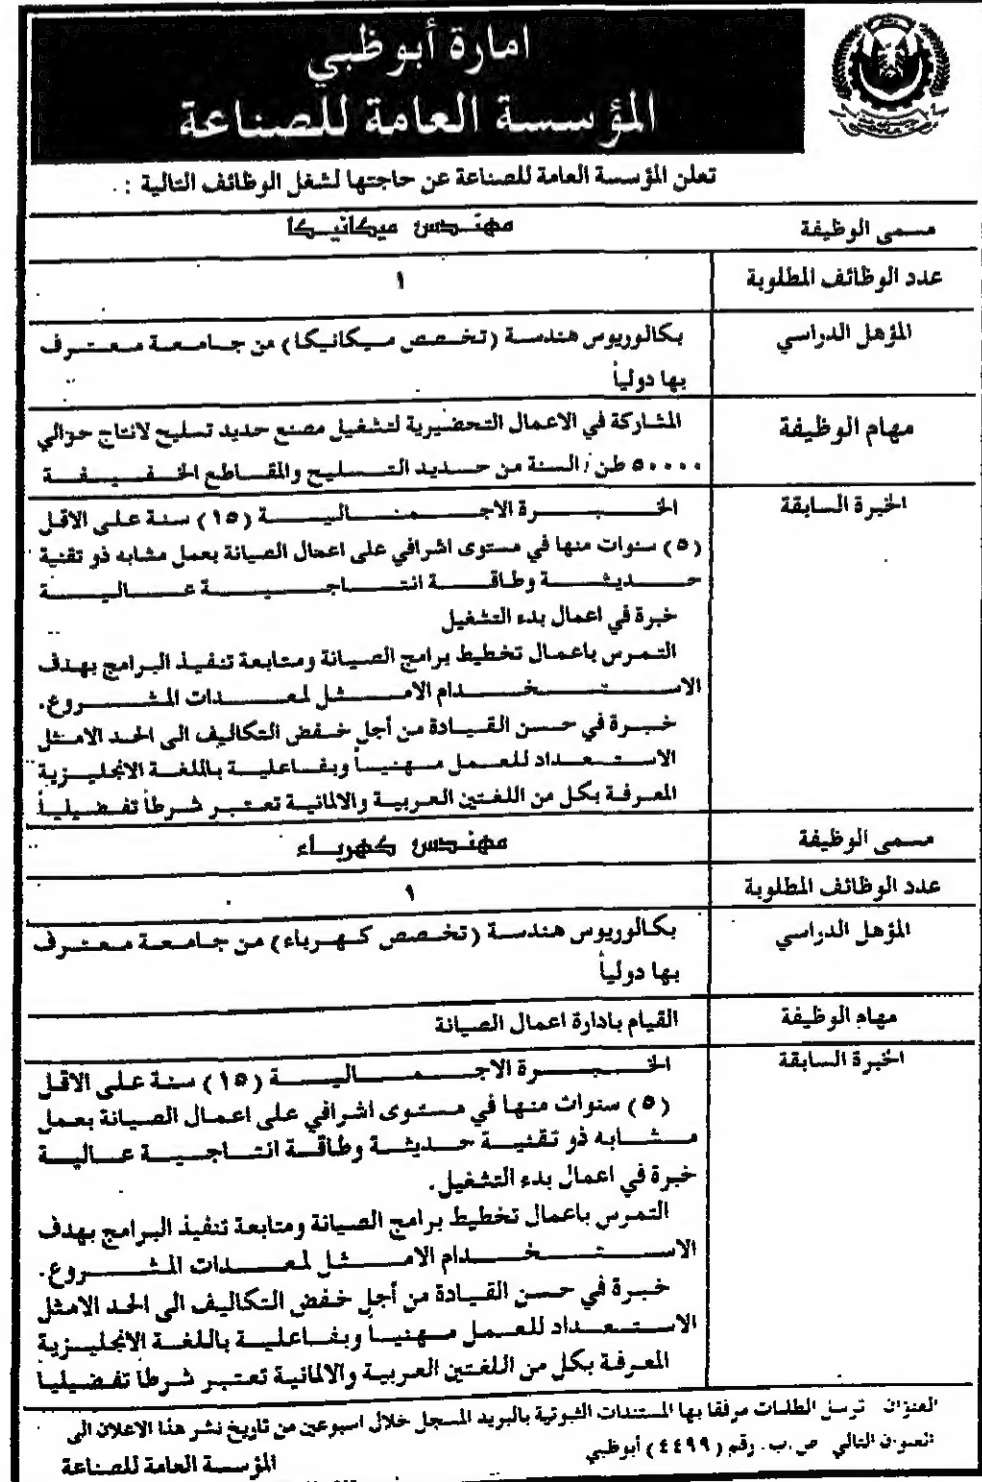 امارة أبوظبي
المؤسسة العامة للصناعة
تعلن المؤسسة العامة للصناعة عن حاجتها لشغل الوظائف التالية : .
مسمى الوظيفة مهندس ميكانيكا
عدد الوظائف المطلوبة ١
المؤهل الدراسي بكالوريوس هندسة (تخصص ميكانيكا) من جامعة معترف
بها دولياً
مهام الوظيفة المشاركة في الاعمال التحضيرية لتشغيل مصنع حديد تسليح لانتاج حوالي
٥٠٠٠٠ طن / السنة من حديد التسليح والمقاطع الخفيفة
الخبرة السابقة الخبرة الاجمالية (١٥) سنة على الاقل
(٥) سنوات منها في مستوى اشرافي على اعمال الصيانة بعمل مشابه ذو تقنية
حديثة وطاقة انتاجية عالية
خبرة في اعمال بدء التشغيل
التمرس باعمال تخطيط برامج الصيانة ومتابعة تنفيذ البرامج بهدف
الاستخدام الامثل لمعدات المشروع.
خبرة في حسن القيادة من أجل خفض التكاليف الى الحد الامثل
الاستعداد للعمل مهنياً وبفاعلية باللغة الانجليزية
المعرفة بكل من اللغتين العربية والالمانية تعتبر شرطاً تفضيلياً
مسمى الوظيفة مهندس كهرباء
عدد الوظائف المطلوبة ١
المؤهل الدراسي بكالوريوس هندسة (تخصص كهرباء) من جامعة معترف
بها دولياً
مهام الوظيفة القيام بادارة اعمال الصيانة
الخبرة السابقة الخبرة الاجمالية (١٥) سنة على الاقل
(٥) سنوات منها في مستوى اشرافي على اعمال الصيانة بعمل
مشابه ذو تقنية حديثة وطاقة انتاجية عالية
خبرة في اعمال بدء التشغيل.
التمرس باعمال تخطيط برامج الصيانة ومتابعة تنفيذ البرامج بهدف
الاستخدام الامثل لمعدات المشروع.
خبرة في حسن القيادة من أجل خفض التكاليف الى الحد الامثل
الاستعداد للعمل مهنيا وبفاعلية باللغة الانجليزية
المعرفة بكل من اللغتين العربية والالمانية تعتبر شرطاً تفضيلياً
العنوان ترسل الطلبات مرفقا بها المستندات الثبوتية بالبريد المسجل خلال اسبوعين من تاريخ نشر هذا الاعلان الى
العنوان التالي ص.ب. رقم (٤٤٩٩) أبوظبي
المؤسسة العامة للصناعة